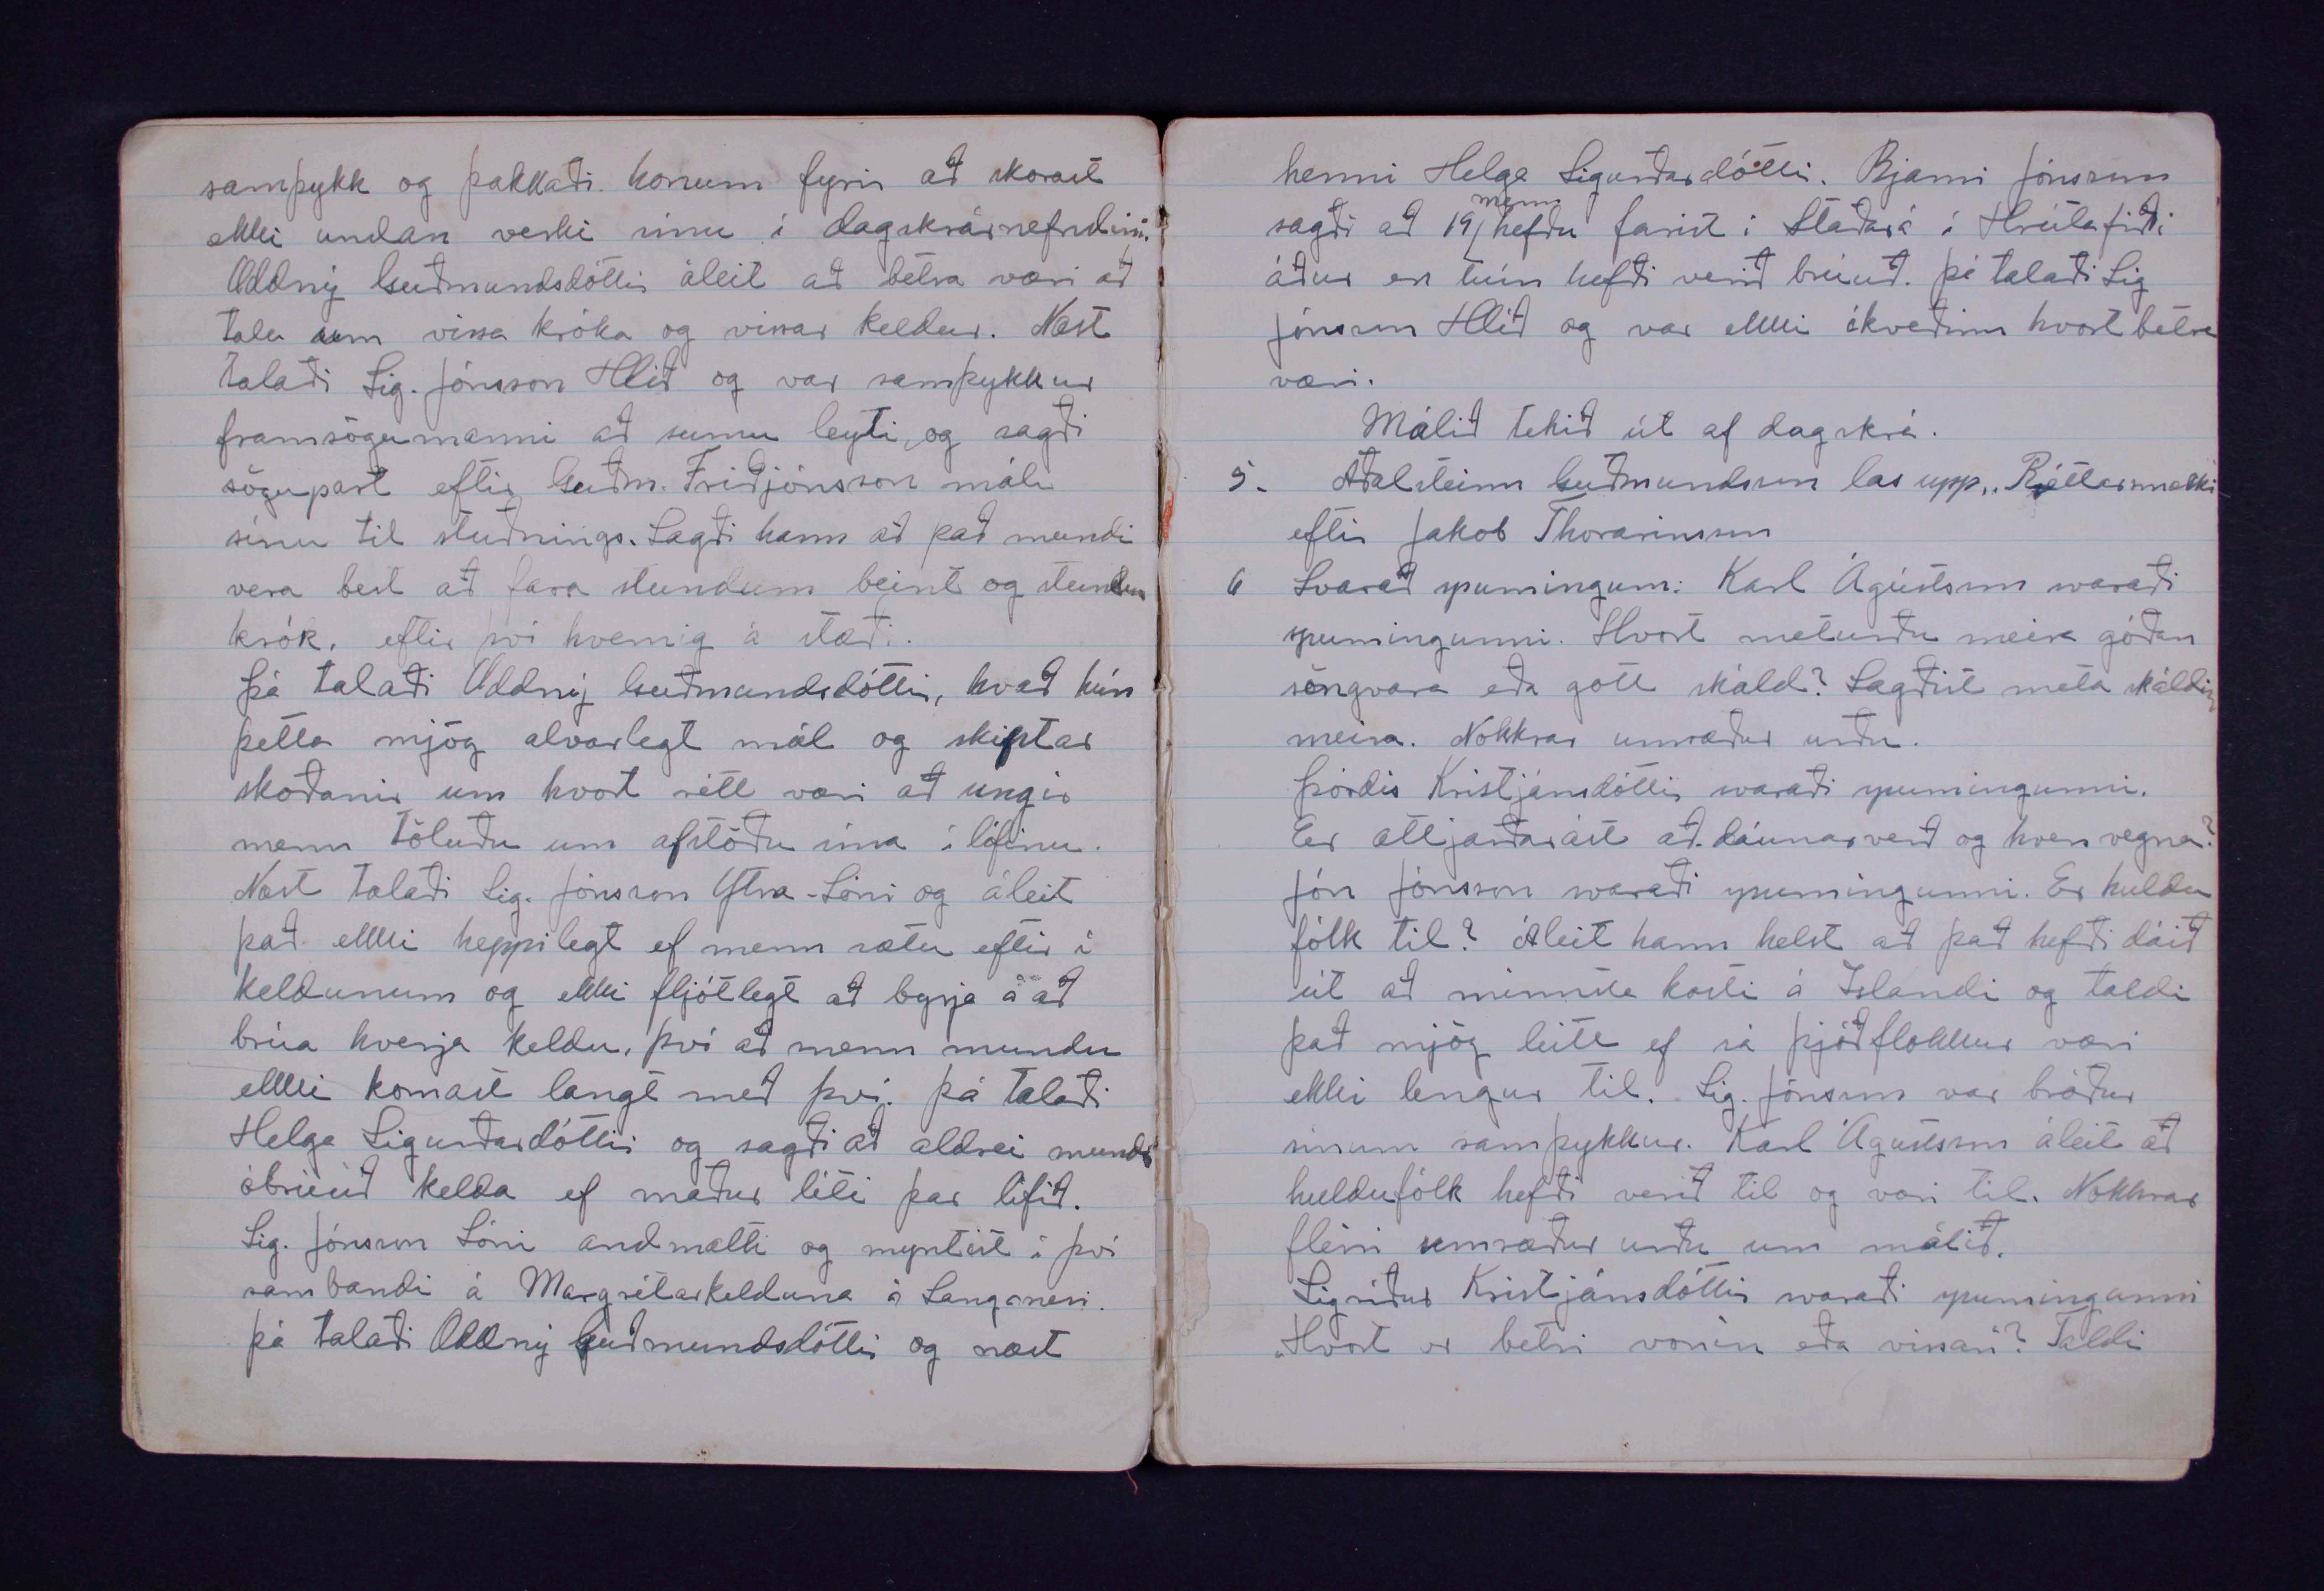 samþykk og þakkaði honum fyrir að skorast
ekki undan verki sínu í dagskrárnefndinni.
Oddný Guðmundsdóttir áleit að betra væri að
tala um vissa króka og vissar keldur. Næst
talaði Sig. Jónsson Hlíð og var samþykkur
framsögumanni að sumu leyti, og sagði
sögupart eftir Guðm. Friðjónsson máli
sínu til stuðnings. Sagði hann að það mundi
vera best að fara stundum beint og stundum
krók, eftir því hvernig á stæði.
Þá talaði Oddný Guðmundsdóttir, kvað hún
þetta mjög alvarlegt mál og skiptar
skoðanir um hvort rétt væri að ungir
menn töluðu um afstöðu sína í lífinu.
Næst talaði Sig. Jónsson Ytra-Lóni og áleit
það ekki heppilegt ef menn sætu eftir í
keldunum og ekki fljótlegt að byrja á að
brúa hverja keldu, því að menn mundu
ekki komast langt með því. Þá talaði
Helga Sigurðardóttir og sagði að aldrei mundi
óbrúuð kelda ef maður léti þar lífið.
Sig. Jónsson Lóni andmælti og myntist í því
sambandi á Margrétarkelduna á Langanesi.
Þá talaði Oddný Guðmundsdóttir og næst
henni Helga Sigurðardóttir. Bjarni Jónsson
sagði að 19 menn hefðu farist í Staðará í Hrútafirði
áður en hún hefði verið brúuð. Þá talaði Sig
Jónsson Hlíð og var ekki ákveðinn hvort betra
væri.
Málið tekið út af dagskrá.
5. Aðalsteinn Guðmundsson las upp „Réttarmaski
eftir Jakob Thorarinsson
6 Svarað spurningum: Karl Ágústsson svaraði
spurningunni. Hvort meturðu meira góðan
söngvara eða gott skáld? Sagðist meta skáldið
meira. Nokkrar umræður urðu.
Þórdís Kristjánsdóttir svaraði spurningunni.
Er ættjarðarást aðdáunarverð og hvers vegna?
Jón Jónsson svaraði spurningunni. Er huldu
fólk til? Áleit hann helst að það hefði dáið
út að minnsta kosti á Íslandi og taldi
það mjög leitt ef sá þjóðflokkur væri
ekki lengur til. Sig. Jónsson var bróður
sínum samþykkur. Karl Ágústsson áleit að
huldufólk hefði verið til og væri til. Nokkrar
fleiri umræður urðu um málið.
Sigríður Kristjánsdóttir svaraði spurningunni
„Hvort er betri vonin eða vissan"? Taldi